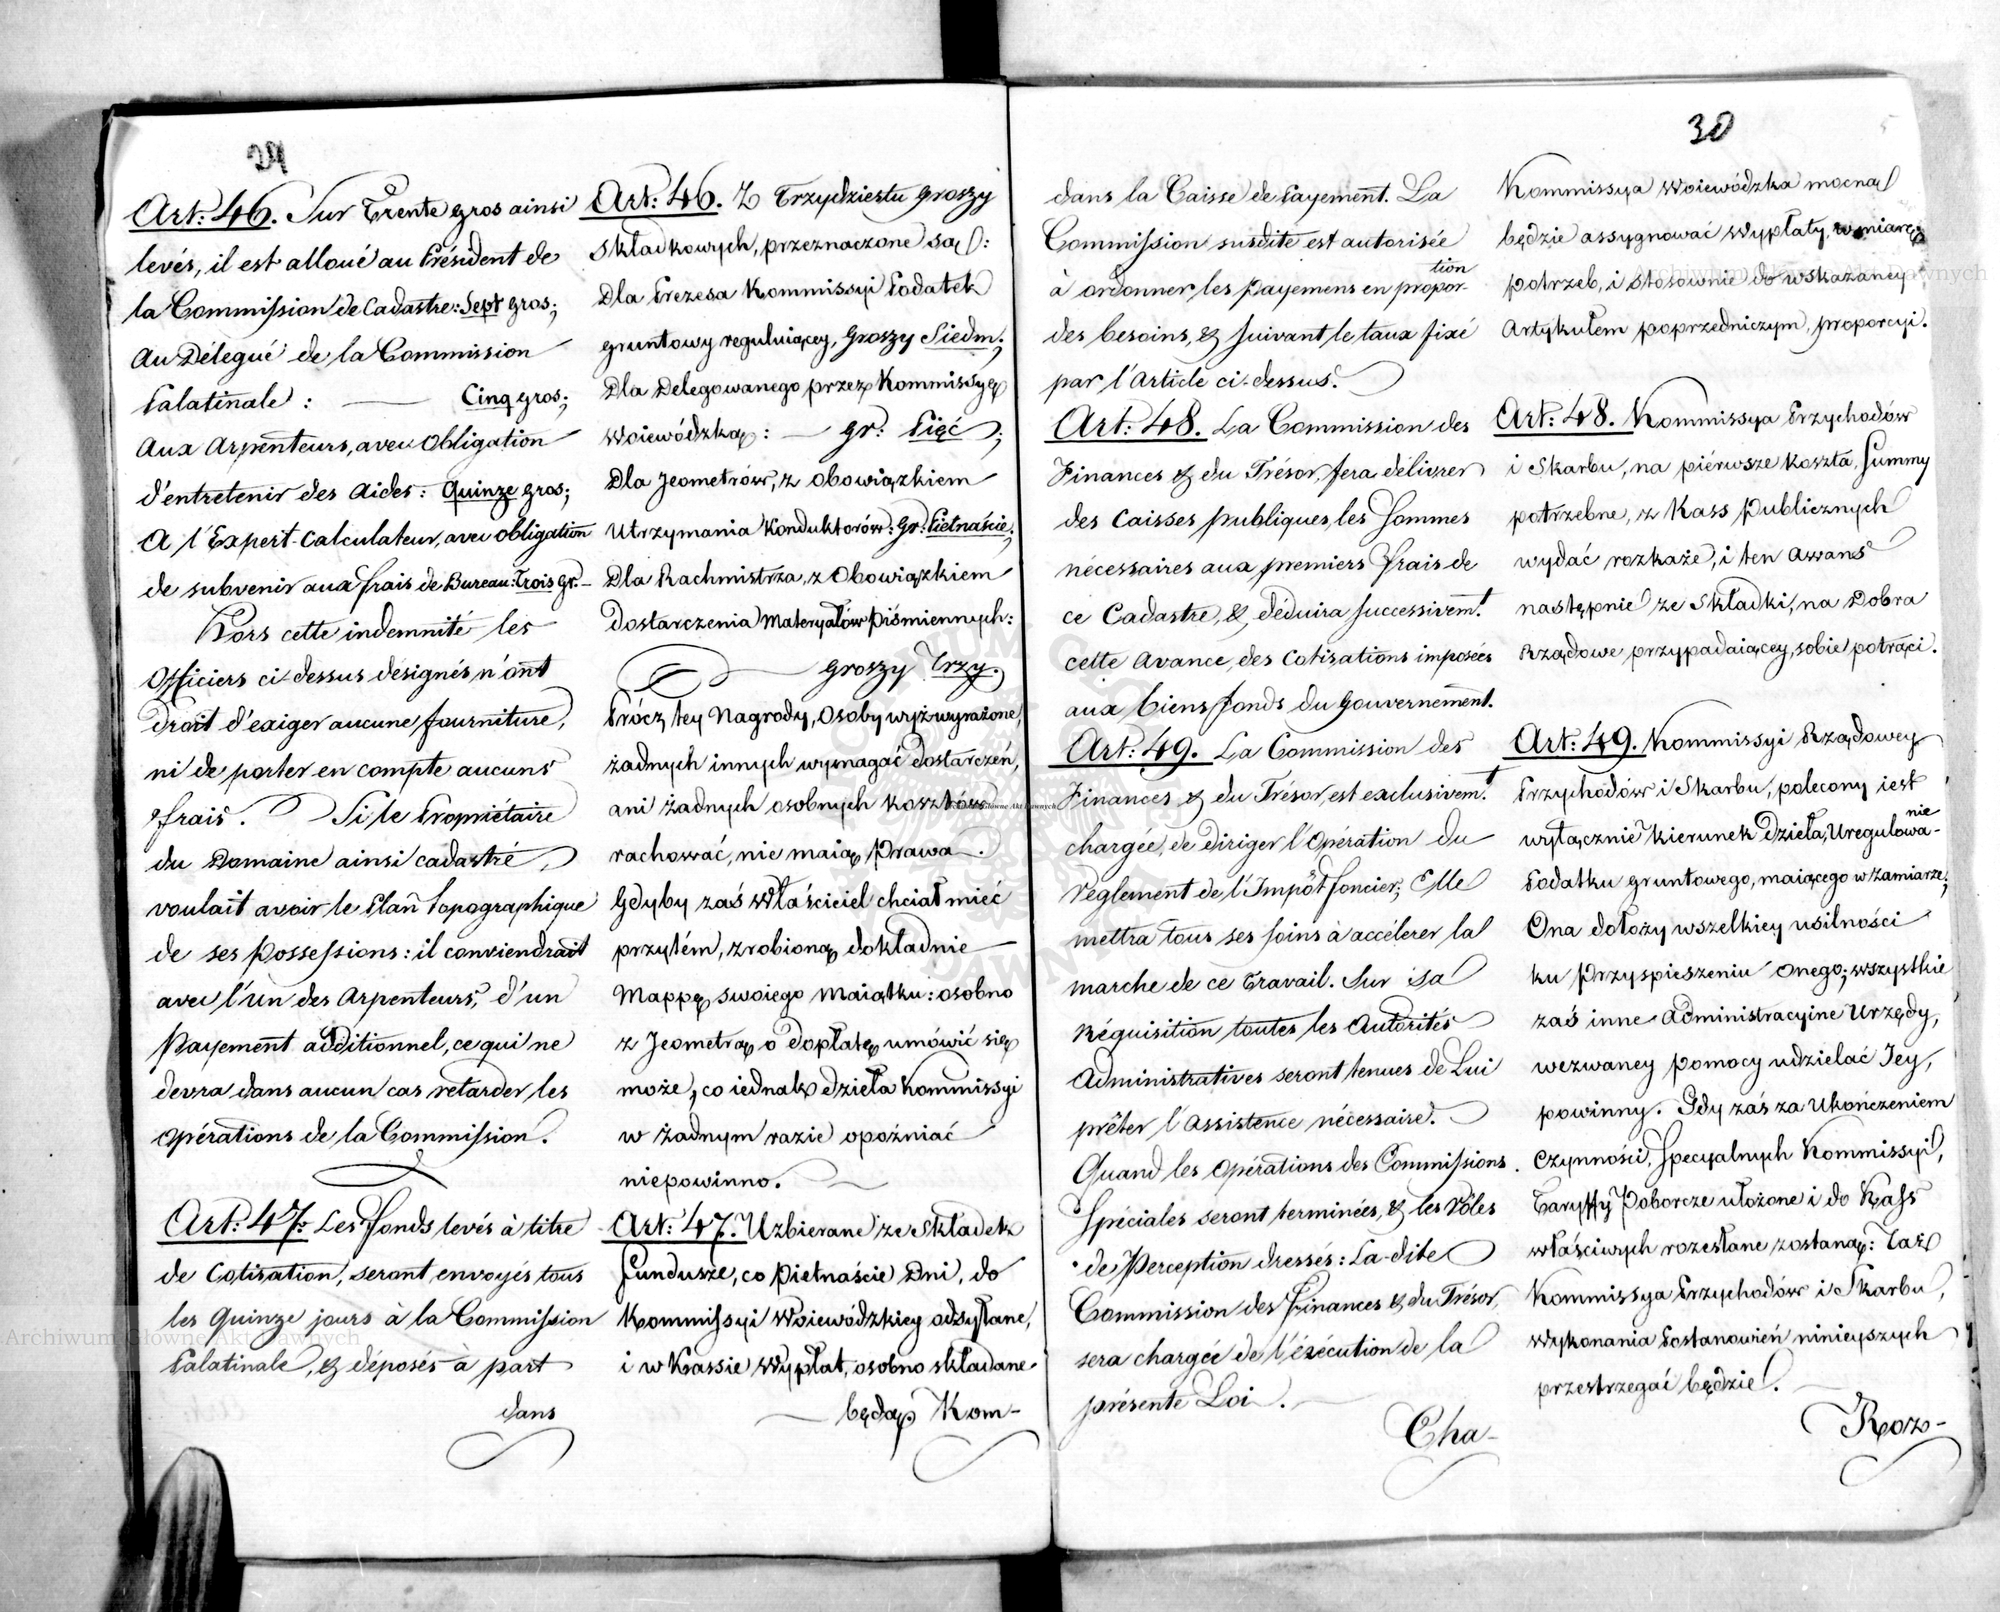 29
Art: 46. Sur Trente gros ainsi
levés, il est alloué au Président de
la Commission de Cadastre: Sept gros;
Au Délegué de la Commission
Palatinale: — Cinq gros;
Aux Arpenteurs, avec obligation
d'entretenir des Aides: Quinze gros;
A l'Expert-Calculateur, avec obligation
de subvenir aux frais de Bureau: Trois gr.
Hors cette indemnité les
Officiers ci-dessus désignés n'ont
Droit d'exiger aucune fourniture,
ni de porter en compte aucuns
frais. Si le Propriétaire
du Domaine ainsi cadastré,
voulait avoir le Plan topographique
de ses possessions: il conviendrait
avec l'un des Arpenteurs, d'un
Payement additionnel, ce qui ne
devra dans aucun cas retarder les
opérations de la Commission.
Art: 47: Les fonds levés à titre
de Cotisation, seront envoyés tous
les Quinze jours à la Commission
Palatinale, & déposés à part
dans
Art: 46. Z Trzydziestu groszy
składkowych, przeznaczone są:
Dla Prezesa Kommissyi Podatek
gruntowy reguluiącey, groszy Siedm;
Dla Delegowanego przez Kommissyę
Woiewódzką: — gr: Pięć;
Dla Jeometrów, z obowiązkiem
Utrzymania Konduktorów: gr: Piętnaście;
Dla Rachmistrza, z Obowiązkiem
Dostarczenia Materyałów piśmiennych:
— groszy Trzy.
Prócz tey Nagrody, Osoby wyż wyrażone,
żadnych innych wymagać dostarczeń,
ani żadnych osobnych kosztów
rachować, nie maią prawa.
Gdyby zaś Właściciel chciał mieć
przytém, zrobioną dokładnie
Mappę swoiego Maiątku: osobno
z Jeometrą o dopłatę umówić się
może, co iednak dzieła Kommissyi
w żadnym razie opoźniać
niepowinno.
Art: 47. Uzbierane ze Składek
fundusze, co piętnaście Dni, do
Kommissyi Woiewódzkiey odsyłane,
i w Kassie Wypłat, osobno składane
będą. Kom-
30
dans la Caisse de Payement. La
Commission susdite est autorisée
à ordonner les payemens en propor-
tion
des besoins, & suivant le taux fixé
par l'Article ci-dessus.
Art: 48. La Commission des
Finances & du Trésor, fera délivrer
des Caisses publiques, les Sommes
nécessaires aux premiers frais de
ce Cadastre, & déduira successivemt.
cette Avance, des Cotisations imposées
aux biens fonds du Gouvernement.
Art: 49. La Commission des
Finances & du Trésor, est exclusivemt.
chargée, de diriger l'Opération du
Réglement de l'Impôt foncier; Elle
mettra tous ses soins à accélerer la
marche de ce Travail. Sur sa
Réquisition toutes les Autorités
Administratives seront tenues de Lui
prêter l'Assistence nécessaire.
Quand les opérations des Commissions
Spéciales seront terminées, & les Rôles
de Perception dressés: La-dite
Commission des Finances & du Trésor,
sera chargée de l'éxécution de la
présente Loi.
Cha-
Kommissya Woiewódzka mocną
będzie assygnować Wypłaty, w miarę
potrzeb, i stosownie do wskazaney
Artykułem poprzedniczym, proporcyi.
Art: 48. Kommissya Przychodów
i Skarbu, na piérwsze koszta, Summy
potrzebne, z Kass Publicznych
wydać rozkaże, i ten Awans
następnie ze Składki, na Dobra
Rządowe przypadaiącey, sobie potrąci.
Art: 49. Kommissyi Rządowey
Przychodów i Skarbu, polecony iest
wyłącznie kierunek dzieła, Uregulowa-
nie
Podatku gruntowego, maiącego w zamiarze;
Ona dołoży wszelkiey usilności
ku przyspieszeniu onego; wszystkie
zaś inne Administracyine Urzędy,
wezwaney pomocy udzielać Jey,
powinny. Gdy zaś za Ukończeniem
Czynności, Specyalnych Kommissyi,
Taryffy Poborcze ułożone i do Kass
właściwych rozesłane zostaną: Taż
Kommissya Przychodów i Skarbu,
Wykonania Postanowień ninieyszych
przestrzegać będzie.
Roz-
Archiwum Główne Akt Dawnych